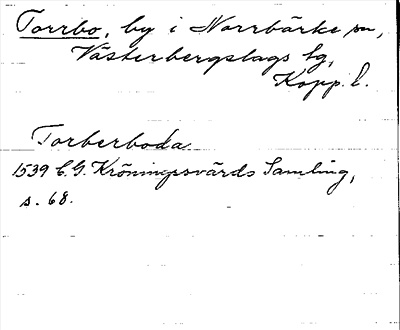 Torrbo, by i Norrbärke sn,
Västerbergslags tg,
Kopp. l.
Torberboda
1539 C.G. Kröningsvärds Samling,
s. 68.